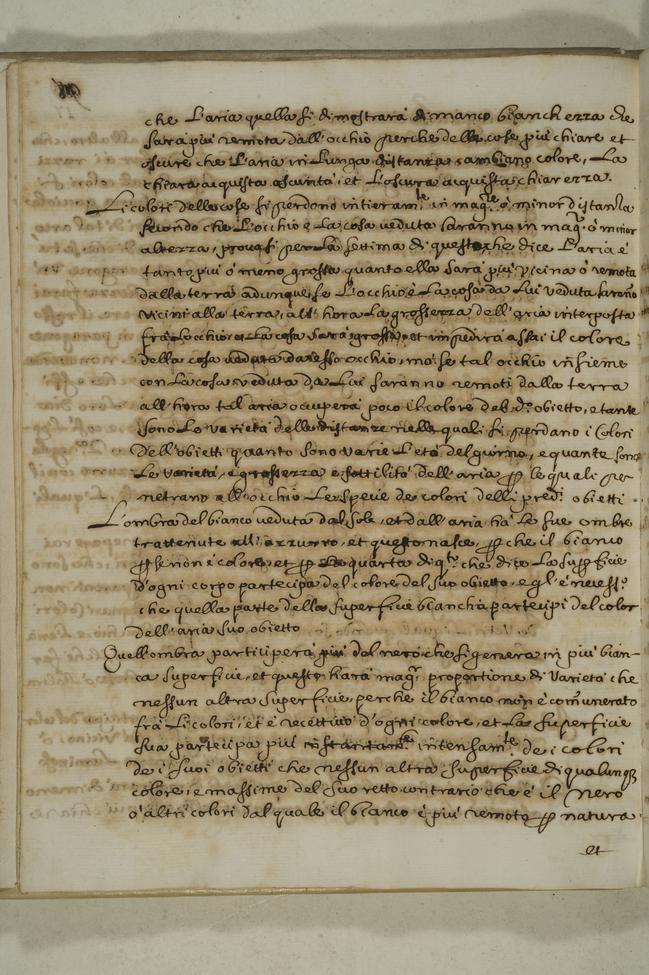 che L'aria quella si dimostrarà di manco bianchezza che
sarà più remota dall'occhio perche delle cose più chiare et
oscure che L'aria in lunga distanza cambiano colore, La
chiara acquista oscurità, et L'oscura acquista chiarezza.
Li colori delle cose si perdono intieram.te in mag.re ò minor distanza
secondo che L'occhio e La cosa veduta saranno in mag.r ò minor
altezza, provasi per La settima di questo che dice L'aria è
tanto più ò meno grossa quanto ella sarà più vicina ò remota
dalla terra adunque se L'occhio è La cosa da Lui veduta sarano
vicini alla terra, all'hora La grossezza dell'aria interposta
fra Locchio, et La cosa sarà grossa, et impedirà assai il colore
della cosa veduta da esso occhio, mà se tal occhio insieme
con La cosa veduta da Lui saranno remoti dalla terra
all'hora tal aria ocuperà poco il colore del d.o obietto, e tante
sono Le varietà delle distanze nelle quali si perdano i Colori
dell'obietti quanto sono varie L'età del giorno, e quante sono
Le varietà, è grossezza e sottilità dell'aria p le quali pe-
netrano all'occhio Le specie de colori delli pred.i obietti.
L'ombra del bianco veduta dal sole, et dall'aria hà le sue ombre
trattenute all'azzurro, et questo nasce, p che il bianco
p se non è colore, et p La quarta di q.to che dice La superficie
d'ogni corpo partecipa del colore del suo obietto, e gl'è necess.o
che quella parte della superficie biancha partecipi del color
dell'aria suo obietto
Quell'ombra participerà più dal nero che si genera in più bian-
ca superficie, et questo harà mag.r proportione di Varietà che
nessun altra superficie, perche il bianco non è comunerato
frà Li colori, et è recettivo d'ogni colore, et La superficie
sua partecipa più intensam.te de i colori
de i suoi obietti che nessun altra superficie di qualunq
colore, e massime del suo retto contrario che è il Nero
ò altri colori dal quale il bianco è più remoto p natura
et